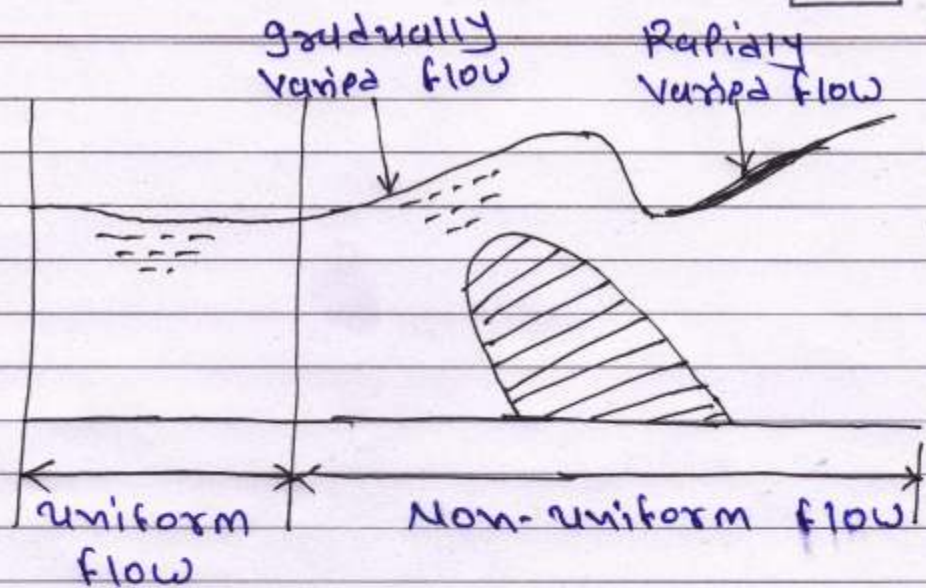 gradually
varied flow
Rapidly
varied flow
uniform
flow
Non-uniform flow